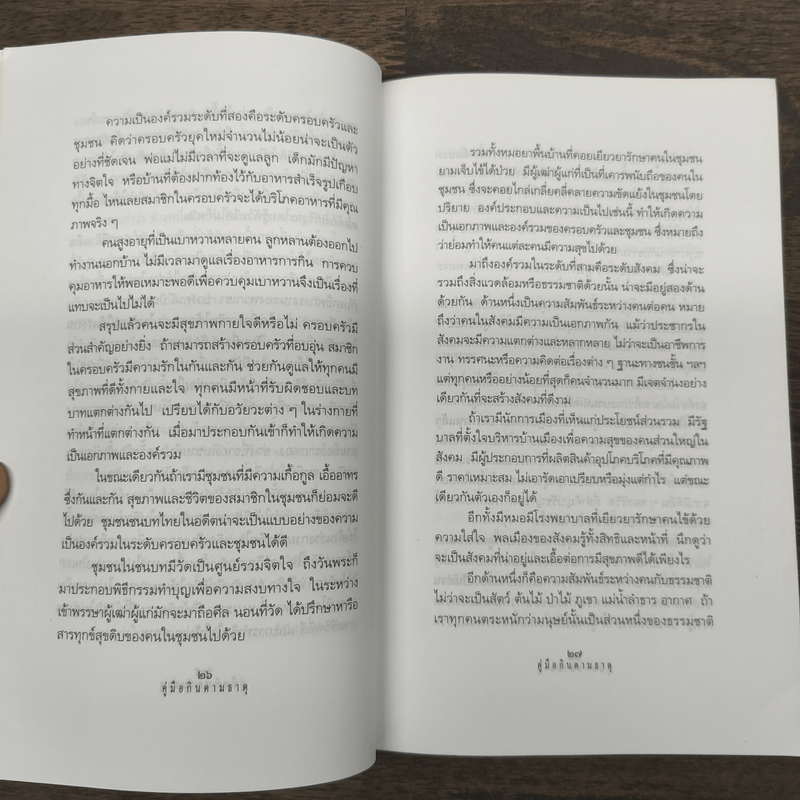 ความเป็นองค์รวมระดับที่สองคือระดับครอบครัวและ
ชุมชน คิดว่าครอบครัวยุคใหม่จำนวนไม่น้อยน่าจะเป็นตัว
อย่างที่ชัดเจน พ่อแม่ไม่มีเวลาที่จะดูแลลูก เด็กมักมีปัญหา
ทางจิตใจ หรือบ้านที่ต้องฝากท้องไว้กับอาหารสำเร็จรูปเกือบ
ทุกมื้อ ไหนเลยสมาชิกในครอบครัวจะได้บริโภคอาหารที่มีคุณ
ภาพจริง ๆ
คนสูงอายุที่เป็นเบาหวานหลายคน ลูกหลานต้องออกไป
ทำงานนอกบ้าน ไม่มีเวลามาดูแลเรื่องอาหารการกิน การควบ
คุมอาหารให้พอเหมาะพอดีเพื่อควบคุมเบาหวานจึงเป็นเรื่องที่
แทบจะเป็นไปไม่ได้
สรุปแล้วคนจะมีสุขภาพกายใจดีหรือไม่ ครอบครัวมี
ส่วนสำคัญอย่างยิ่ง ถ้าสามารถสร้างครอบครัวที่อบอุ่น สมาชิก
ในครอบครัวมีความรักในกันและกัน ช่วยกันดูแลให้ทุกคนมี
สุขภาพที่ดีทั้งกายและใจ ทุกคนมีหน้าที่รับผิดชอบและบท
บาทแตกต่างกันไป เปรียบได้กับอวัยวะต่าง ๆ ในร่างกายที่
ทำหน้าที่แตกต่างกัน เมื่อมาประกอบกันเข้าก็ทำให้เกิดความ
เป็นเอกภาพและองค์รวม
ในขณะเดียวกันถ้าเรามีชุมชนที่มีความเกื้อกูล เอื้ออาทร
ซึ่งกันและกัน สุขภาพและชีวิตของสมาชิกในชุมชนก็ย่อมจะดี
ไปด้วย ชุมชนชนบทไทยในอดีตน่าจะเป็นแบบอย่างของความ
เป็นองค์รวมในระดับครอบครัวและชุมชนได้ดี
ชุมชนในชนบทมีวัดเป็นศูนย์รวมจิตใจ ถึงวันพระก็
มาประกอบพิธีกรรมทำบุญเพื่อความสงบทางใจ ในระหว่าง
เข้าพรรษาผู้เฒ่าผู้แก่มักจะมาถือศีล นอนที่วัด ได้ปรึกษาหารือ
สารทุกข์สุขดิบของคนในชุมชนไปด้วย
๒๖
คู่มือกินตามธาตุ
รวมทั้งหมอยาพื้นบ้านที่คอยเยียวยารักษาคนในชุมชน
ยามเจ็บไข้ได้ป่วย มีผู้เฒ่าผู้แก่ที่เป็นที่เคารพนับถือของคนใน
ชุมชน ซึ่งจะคอยไกล่เกลี่ยคลี่คลายความขัดแย้งในชุมชนโดย
ปริยาย องค์ประกอบและความเป็นไปเช่นนี้ ทำให้เกิดความ
เป็นเอกภาพและองค์รวมของครอบครัวและชุมชน ซึ่งหมายถึง
ว่าย่อมทำให้คนแต่ละคนมีความสุขไปด้วย
มาถึงองค์รวมในระดับที่สามคือระดับสังคม ซึ่งน่าจะ
รวมถึงสิ่งแวดล้อมหรือธรรมชาติด้วยนั้น น่าจะมีอยู่สองด้าน
ด้วยกัน ด้านหนึ่งเป็นความสัมพันธ์ระหว่างคนต่อคน หมาย
ถึงว่าคนในสังคมมีความเป็นเอกภาพกัน แม้ว่าประชากรใน
สังคมจะมีความแตกต่างและหลากหลาย ไม่ว่าจะเป็นอาชีพการ
งาน ทรรศนะหรือความคิดต่อเรื่องต่าง ๆ ฐานะทางชนชั้น ฯลฯ
แต่ทุกคนหรืออย่างน้อยที่สุดก็คนจำนวนมาก มีเจตจำนงอย่าง
เดียวกันที่จะสร้างสังคมที่ดีงาม
ถ้าเรามีนักการเมืองที่เห็นแก่ประโยชน์ส่วนรวม มีรัฐ
บาลที่ตั้งใจบริหารบ้านเมืองเพื่อความสุขของคนส่วนใหญ่ใน
สังคม มีผู้ประกอบการที่ผลิตสินค้าอุปโภคบริโภคที่มีคุณภาพ
ดี ราคาเหมาะสม ไม่เอารัดเอาเปรียบหรือมุ่งแต่กำไร แต่ขณะ
เดียวกันตัวเองก็อยู่ได้
อีกทั้งมีหมอมีโรงพยาบาลที่เยียวยารักษาคนไข้ด้วย
ความใส่ใจ พลเมืองของสังคมรู้ทั้งสิทธิและหน้าที่ นึกดูว่า
จะเป็นสังคมที่น่าอยู่และเอื้อต่อการมีสุขภาพดีได้เพียงไร
อีกด้านหนึ่งก็คือความสัมพันธ์ระหว่างคนกับธรรมชาติ
ไม่ว่าจะเป็นสัตว์ ต้นไม้ ป่าไม้ ภูเขา แม่น้ำลำธาร อากาศ ถ้า
เราทุกคนตระหนักว่ามนุษย์นั้นเป็นส่วนหนึ่งของธรรมชาติ
๒๗
คู่มือกินตามธาตุ